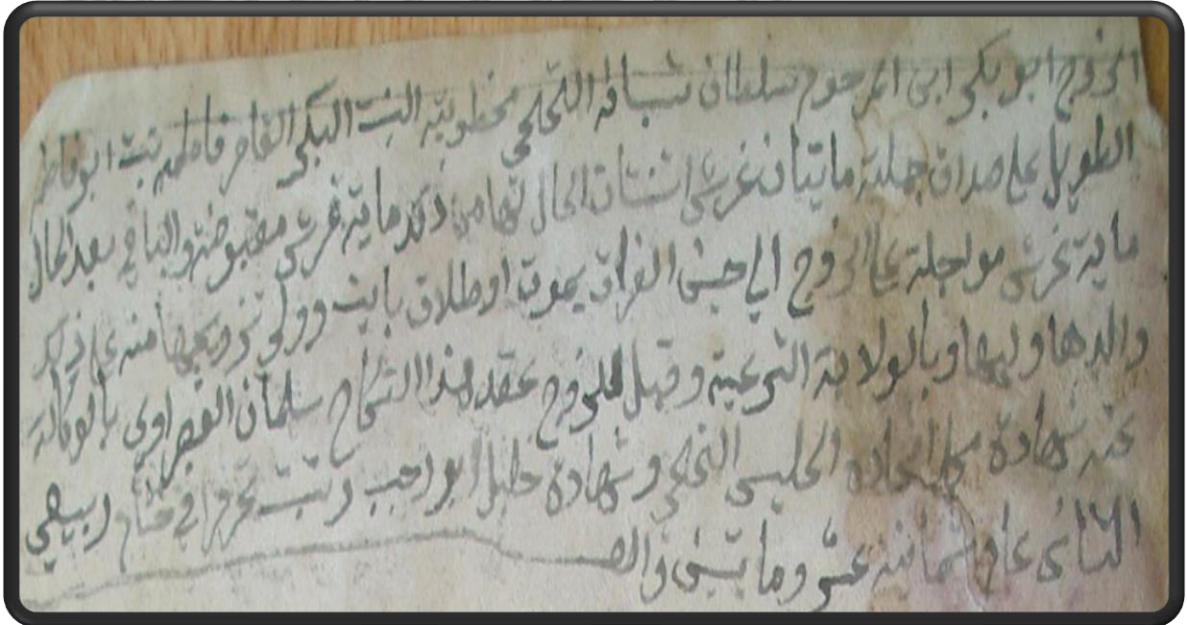 الزوج ابو بكر ابن المرحوم سلطان شبانه التلحمي مخطوبته البنت البكر القاصر فاطمه بنت ابو فاطمه
الطويل على صداق جملته مايتان غرش اثنتان الحال لها من ذلك ماية غرش مقبوضة والباقي بعد الحال
ماية غرش مواجلة على الزوج الي حين الفراق بموت او طلاق باين وولي تزويجها منه على ذلك
والدها وليها وبالولاية الشرعية وقبل للزوج عقد هذا النكاح سلمان القصراوي بالوكالة
عنه شهادة الخليلي وشهادة خليل ابو رجب تحريرا في ختام ربيعي
الثاني عام ثمانية عشر ومايتين والف